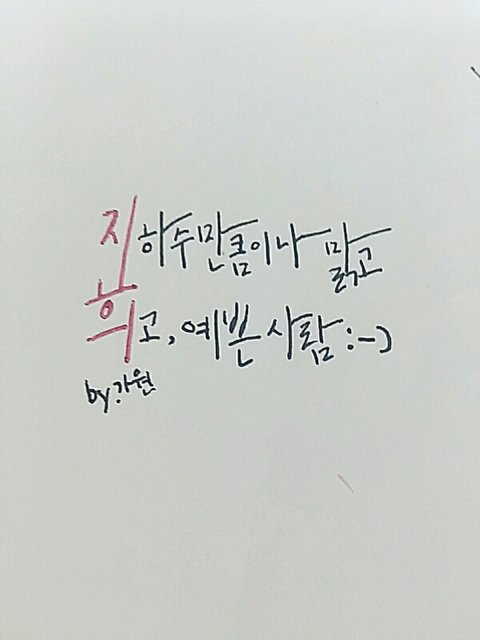 지하수만큼이나 맑고
희고, 예쁜 사람 :-)
by. 가원